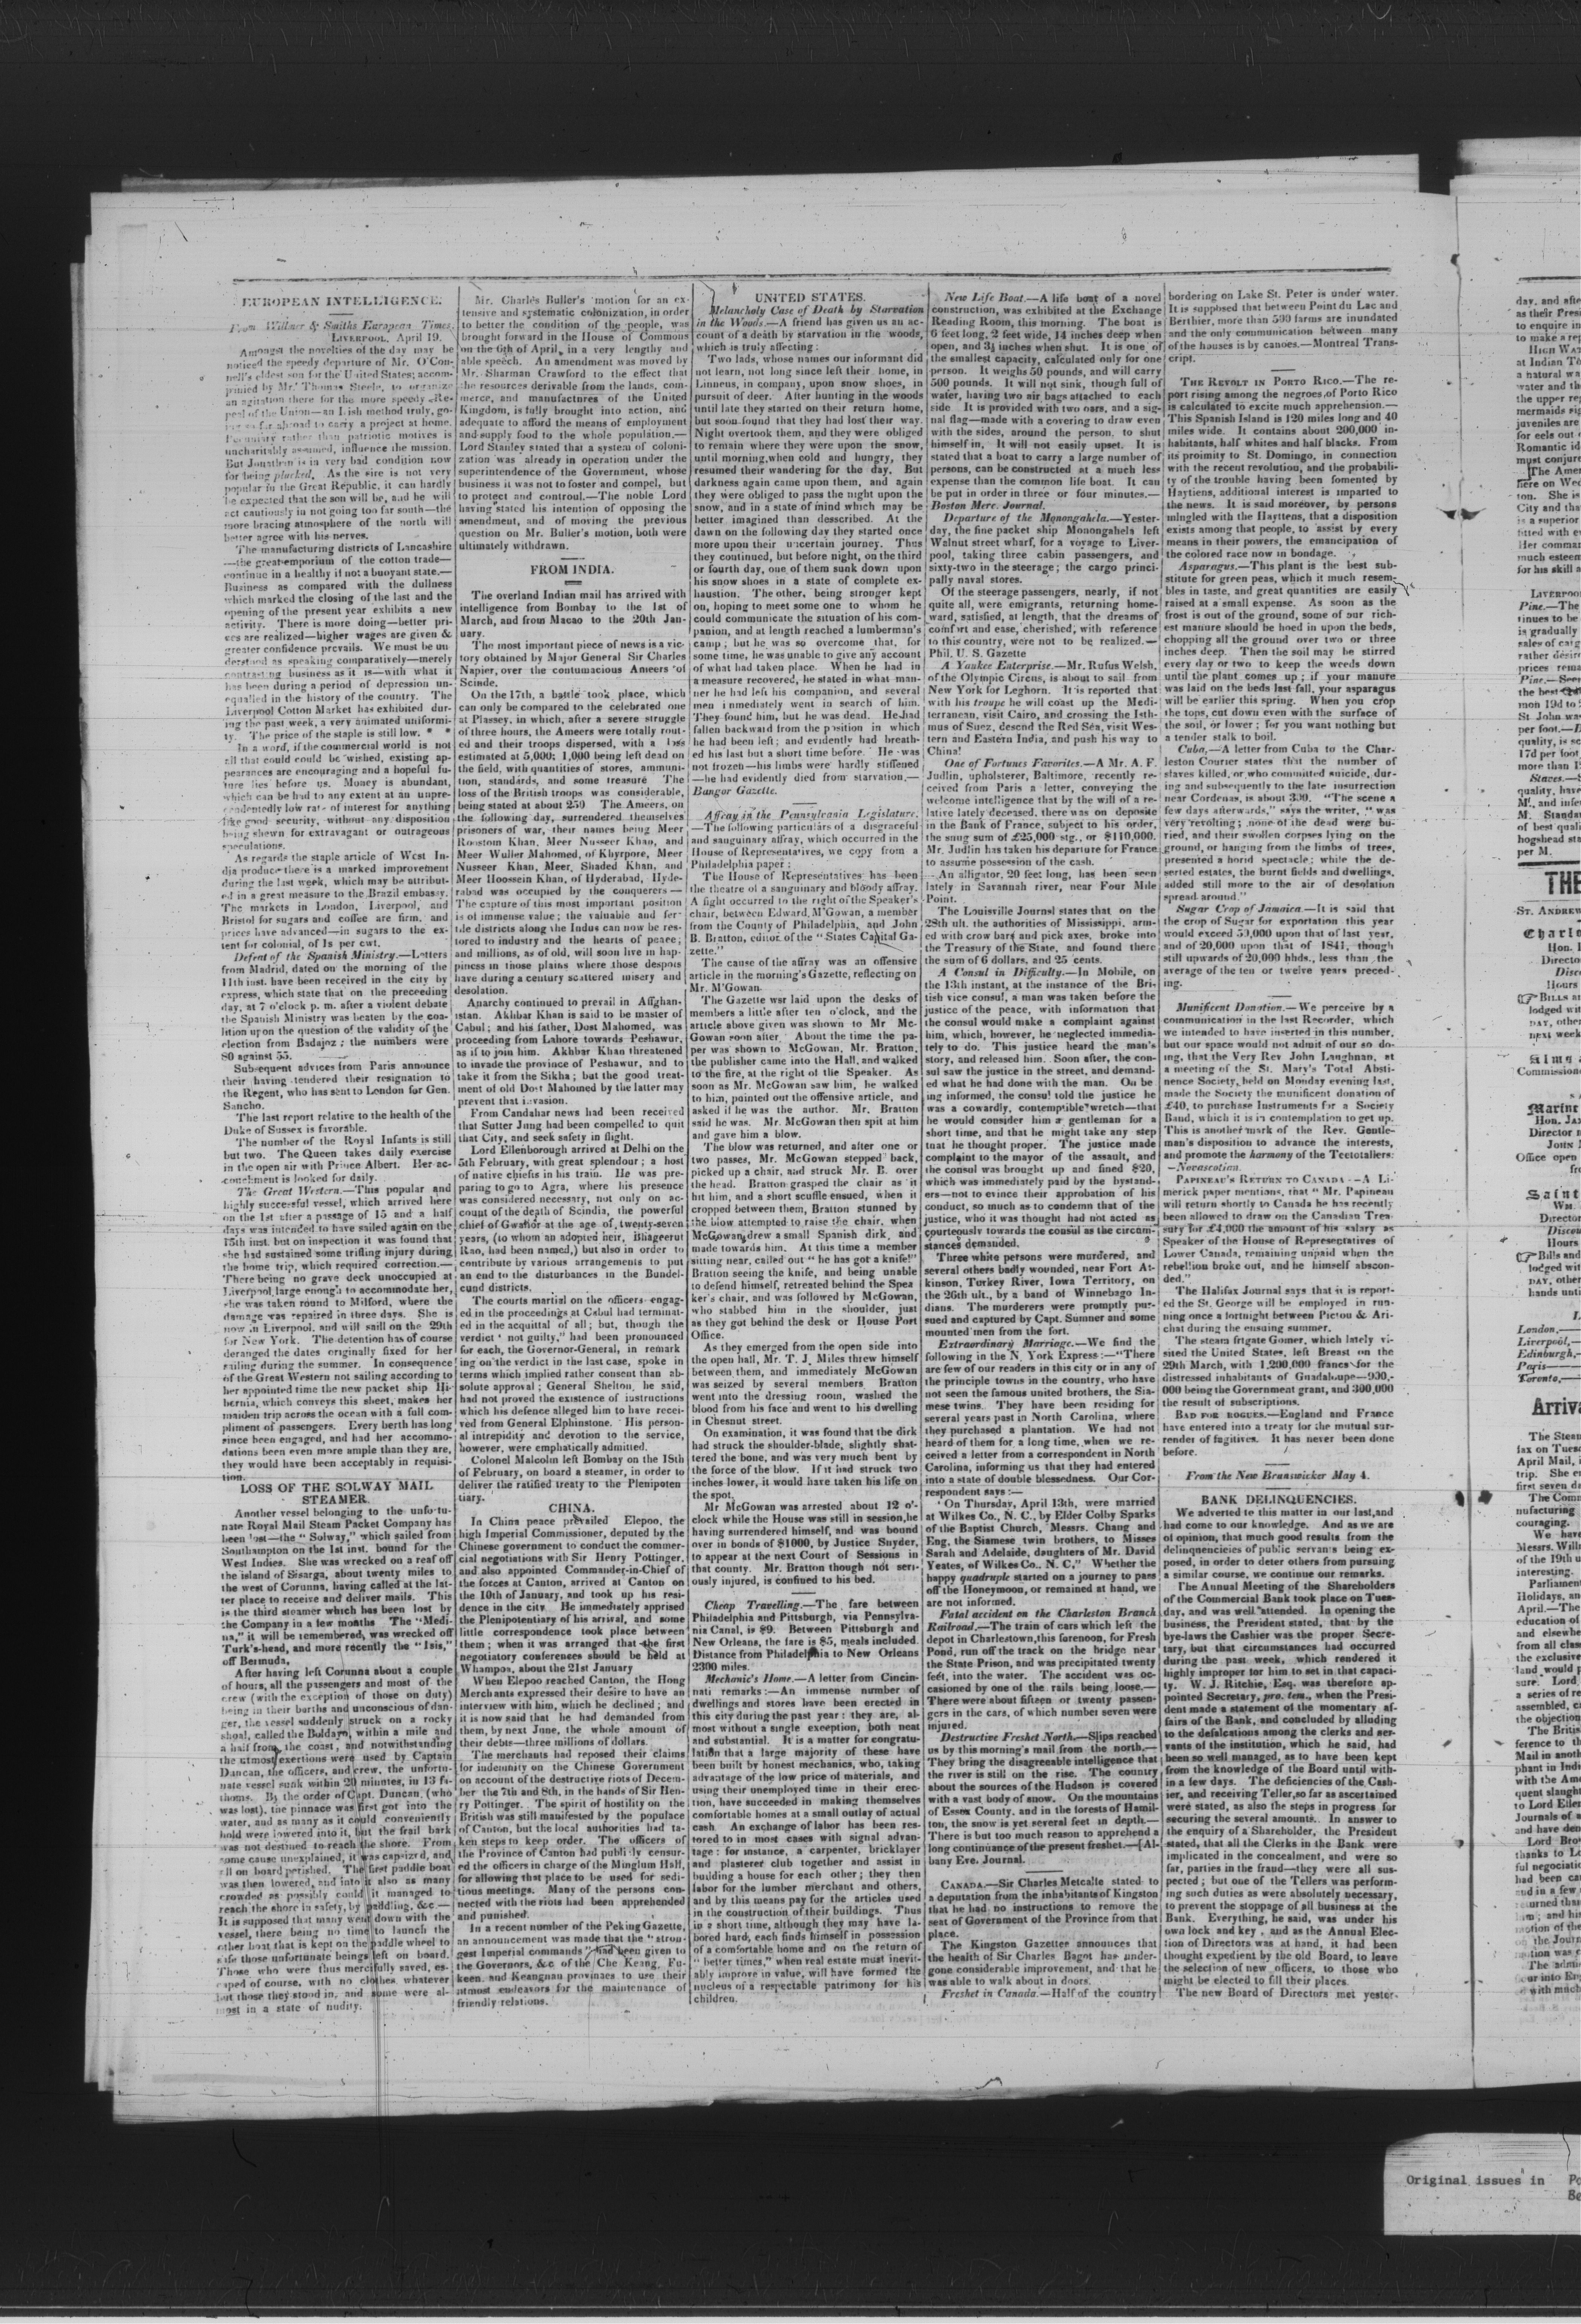 EUROPEAN INTELLIGENCE.
From Willmer & Smiths European Times.
LIVERPOOL, April 19.
Amongst the novelties of the day may be
noticed the speedy departure of Mr. O'Con-
nell's eldest son for the United States; accom-
panied by Mr. Thomas Steele, to organize
an agitation there for the more speedy Re-
peal of the Union—an Irish method truly, go-
ing so far abroad to carry a project at home.
Pecuniary rather than patriotic motives is
uncharitably assumed, influence the mission.
But Jonathan is in very bad condition now
for being plucked. As the sire is not very
popular in the Great Republic, it can hardly
be expected that the son will be, and he will
act cautiously in not going too far south—the
more bracing atmosphere of the north will
better agree with his nerves.
The manufacturing districts of Lancashire
—the great emporium of the cotton trade—
continue in a healthy if not a buoyant state.—
Business as compared with the dullness
which marked the closing of the last and the
opening of the present year exhibits a new
activity. There is more doing—better pri-
ces are realized—higher wages are given &
greater confidence prevails. We must be un-
derstood as speaking comparatively—merely
contrasting business as it is—with what it
has been during a period of depression un-
equalled in the history of the country. The
Liverpool Cotton Market has exhibited dur-
ing the past week, a very animated uniformi-
ty. The price of the staple is still low. * *
In a word, if the commercial world is not
all that could could be wished, existing ap-
pearances are encouraging and a hopeful fu-
ture lies before us. Money is abundant,
which can be had to any extent at an unpre-
cedentedly low rate of interest for anything
like good security, without any disposition
being shewn for extravagant or outrageous
speculations.
As regards the staple article of West In-
dia produce there is a marked improvement
during the last week, which may be attribut-
ed in a great measure to the Brazil embassy.
The markets in London, Liverpool, and
Bristol for sugars and coffee are firm, and
prices have advanced—in sugars to the ex-
tent for colonial, of 1s per cwt.
Defeat of the Spanish Ministry.—Letters
from Madrid, dated on the morning of the
11th inst. have been received in the city by
express, which state that on the preceeding
day, at 7 o'clock p. m. after a violent debate
the Spanish Ministry was beaten by the coa-
lition upon the question of the validity of the
election from Badajoz; the numbers were
80 against 55.
Subsequent advices from Paris announce
their having tendered their resignation to
the Regent, who has sent to London for Gen.
Sancho.
The last report relative to the health of the
Duke of Sussex is favorable.
The number of the Royal Infants is still
but two. The Queen takes daily exercise
in the open air with Prince Albert. Her ac-
couchment is looked for daily.
The Great Western.—This popular and
highly successful vessel, which arrived here
on the 1st after a passage of 15 and a half
days was intended to have sailed again on the
15th inst. but on inspection it was found that
she had sustained some trifling injury during
the home trip, which required correction.—
There being no grave deck unoccupied at
Liverpool large enough to accommodate her,
she was taken round to Milford, where the
damage was repaired in three days. She is
now in Liverpool, and will saill on the 29th
for New York. The detention has of course
deranged the dates originally fixed for her
sailing during the summer. In consequence
of the Great Western not sailing according to
her appointed time the new packet ship Hi-
bernia, which conveys this sheet, makes her
maiden trip across the ocean with a full com-
pliment of passengers. Every berth has long
since been engaged, and had her accommo-
dations been even more ample than they are,
they would have been acceptably in requisi-
tion.
LOSS OF THE SOLWAY MAIL
STEAMER.
Another vessel belonging to the unfortu-
nate Royal Mail Steam Packet Company has
been lost—the "Solway," which sailed from
Southampton on the 1st inst. bound for the
West Indies. She was wrecked on a reaf off
the island of Sisarga, about twenty miles to
the west of Corunna, having called at the lat-
ter place to receive and deliver mails. This
is the third steamer which has been lost by
the Company in a few months The "Medi-
na," it will be remembered, was wrecked off
Turk's-head, and more recently the "Isis,"
off Bermuda.
After having left Corunna about a couple
of hours, all the passengers and most of the
crew (with the exception of those on duty)
being in their burths and unconscious of dan-
ger, the vessel suddenly struck on a rocky
shoal, called the Baldayo, within a mile and
a half from the coast, and notwithstanding
the utmost exertions were used by Captain
Duncan, the officers, and crew, the unfortu-
nate vessel sunk within 20 minutes, in 13 fa-
thoms. By the order of Capt. Duncan, (who
was lost), the pinnace was first got into the
water, and as many as it could conveniently
hold were lowered into it, but the frail bark
was not destined to reach the shore. From
some cause unexplained, it was capsized, and
all on board perished. The first paddle boat
was then lowered, and into it also as many
crowded as possibly could it managed to
reach the shore in safety, by paddling, &c.—
It is supposed that many went down with the
vessel, there being no time to launch the
other boat that is kept on the paddle wheel to
safe those unfortunate beings left on board.
Those who were thus mercifully saved, es-
caped of course, with no clothes whatever
but those they stood in, and some were al-
most in a state of nudity.
Mr. Charles Buller's motion for an ex-
tensive and systematic colonization, in order
to better the condition of the people, was
brought forward in the House of Commons
on the 6th of April, in a very lengthy and
able speech. An amendment was moved by
Mr. Sharman Crawford to the effect that
the resources derivable from the lands, com-
merce, and manufactures of the United
Kingdom, is fully brought into action, and
adequate to afford the means of employment
and supply food to the whole population.—
Lord Stanley stated that a system of coloni-
zation was already in operation under the
superintendence of the Government, whose
business it was not to foster and compel, but
to protect and controul.—The noble Lord
having stated his intention of opposing the
amendment, and of moving the previous
question on Mr. Buller's motion, both were
ultimately withdrawn.
FROM INDIA.
The overland Indian mail has arrived with
intelligence from Bombay to the 1st of
March, and from Macao to the 20th Jan-
uary.
The most important piece of news is a vic-
tory obtained by Major General Sir Charles
Napier, over the contumacious Ameers of
Scinde.
On the 17th, a battle took place, which
can only be compared to the celebrated one
at Plassey, in which, after a severe struggle
of three hours, the Ameers were totally rout-
ed and their troops dispersed, with a loss
estimated at 5,000; 1,000 being left dead on
the field, with quantities of stores, ammuni-
tion, standards, and some treasure The
loss of the British troops was considerable,
being stated at about 250 The Ameers, on
the following day, surrendered themselves
prisoners of war, their names being Meer
Roostom Khan, Meer Nusseer Khan, and
Meer Wuller Mahomed, of Khyrpore, Meer
Nusseer Khan, Meer Shaded Khan, and
Meer Hoossein Khan, of Hyderabad, Hyde-
rabad was occupied by the conquerers—
The capture of this most important position
is of immense value; the valuable and fer-
tile districts along the Indus can now be res-
tored to industry and the hearts of peace;
and millions, as of old, will soon live in hap-
piness in those plains where those despots
have during a century scattered misery and
desolation.
Anarchy continued to prevail in Affghan-
istan. Akhbar Khan is said to be master of
Cabul; and his father, Dost Mahomed, was
proceeding from Lahore towards Peshawur,
as if to join him. Akhbar Khan threatened
to invade the province of Peshawur, and to
take it from the Sikha; but the good treat-
ment of old Dost Mahomed by the latter may
prevent that invasion.
From Candahar news had been received
that Sutter Jung had been compelled to quit
that City, and seek safety in flight.
Lord Ellenborough arrived at Delhi on the
5th February, with great splendour; a host
of native chiefis in his train. He was pre-
paring to go to Agra, where his presence
was considered necessary, not only on ac-
count of the death of Scindia, the powerful
chief of Gwalior at the age of twenty-seven
years, (to whom an adopted heir, Bhageerut
Rao, had been named,) but also in order to
contribute by various arrangements to put
an end to the disturbances in the Bundel-
cund districts.
The courts martial on the officers engag-
ed in the proceedings at Cabul had terminat-
ed in the acquittal of all; but, though the
verdict 'not guilty," had been pronounced
for each, the Governor-General, in remark
ing on the verdict in the last case, spoke in
terms which implied rather consent than ab-
solute approval; General Shelton, he said,
had not proved the existence of instructions
which his defence alleged him to have recei-
ved from General Elphinstone. His person-
al intrepidity and devotion to the service,
however, were emphatically admitted.
Colonel Malcolm left Bombay on the 18th
of February, on board a steamer, in order to
deliver the ratified treaty to the Plenipoten
tiary.
CHINA.
In China peace prevailed Elepoo, the
high Imperial Commissioner, deputed by the
Chinese government to conduct the commer-
cial negotiations with Sir Henry Pottinger,
and also appointed Commander-in-Chief of
the forces at Canton, arrived at Canton on
the 10th of January, and took up his resi-
dence in the city. He immediately apprised
the Plenipotentiary of his arrival, and some
little correspondence took place between
them; when it was arranged that the first
negotiatory conferences should be held at
Whampoa, about the 21st January
When Elepoo reached Canton, the Hong
Merchants expressed their desire to have an
interview with him, which he declined; and
it is now said that he had demanded from
them, by next June, the whole amount of
their debts—three millions of dollars.
The merchants had reposed their claims
for indemnity on the Chinese Government
on account of the destructive riots of Decem-
ber the 7th and 8th, in the hands of Sir Hen-
ry Pottinger. The spirit of hostility on the
British was still manifested by the populace
of Canton, but the local authorities had ta-
ken steps to keep order. The officers of
the Province of Canton had publicly censur-
ed the officers in charge of the Minglum Hall,
for allowing that place to be used for sedi-
tious meetings. Many of the persons con-
nected with the riots had been apprehended
and punished.
In a recent number of the Peking Gazette,
an announcement was made that the "stron-
gest Imperial commands" had been given to
the Governors, &c. of the Che Keang, Fu-
keen and Keangnan provinces to use their
utmost endeavors for the maintenance of
friendly relations.
UNITED STATES.
Melancholy Case of Death by Starvation
in the Woods.—A friend has given us an ac-
count of a death by starvation in the woods,
which is truly affecting:
Two lads, whose names our informant did
not learn, not long since left their home, in
Linneus, in company, upon snow shoes, in
pursuit of deer. After hunting in the woods
until late they started on their return home,
but soon found that they had lost their way.
Night overtook them, and they were obliged
to remain where they were upon the snow,
until morning, when cold and hungry, they
resumed their wandering for the day. But
darkness again came upon them, and again
they were obliged to pass the night upon the
snow, and in a state of mind which may be
better imagined than desscribed. At the
dawn on the following day they started once
more upon their uncertain journey. Thus
they continued, but before night, on the third
or fourth day, one of them sunk down upon
his snow shoes in a state of complete ex-
haustion. The other, being stronger kept
on, hoping to meet some one to whom he
could communicate the situation of his com-
panion, and at length reached a lumberman's
camp; but he was so overcome that, for
some time, he was unable to give any account
of what had taken place. When he had in
a measure recovered, he stated in what man-
ner he had left his companion, and several
men immediately went in search of him.
They found him, but he was dead. He had
fallen backward from the position in which
he had been left; and evidently had breath-
ed his last but a short time before. He was
not frozen—his limbs were hardly stiffened
—he had evidently died from starvation.—
Bangor Gazette.
Affray in the Pennsylvania Legislature.
—The following particulars of a disgraceful
and sanguinary affray, which occurred in the
House of Representatives, we copy from a
Philadelphia paper:
The House of Representatives has been
the theatre of a sanguinary and bloody affray.
A fight occurred to the right of the Speaker's
chair, between Edward M'Gowan, a member
from the County of Philadelphia, and John
B. Bratton, editor of the "States Capital Ga-
zette."
The cause of the affray was an offensive
article in the morning's Gazette, reflecting on
Mr. M'Gowan.
The Gazette wsr laid upon the desks of
members a little after ten o'clock, and the
article above given was shown to Mr Mc-
Gowan soon after. About the time the pa-
per was shown to McGowan, Mr. Bratton,
the publisher came into the Hall, and walked
to the fire, at the right of the Speaker. As
soon as Mr. McGowan saw him, he walked
to him, pointed out the offensive article, and
asked if he was the author. Mr. Bratton
said he was. Mr. McGowan then spit in him
and gave him a blow.
The blow was returned, and after one or
two passes, Mr. McGowan stepped back,
picked up a chair, and struck Mr. B. over
the head. Bratton grasped the chair as it
hit him, and a short scuffle ensued, when it
cropped between them, Bratton stunned by
the blow attempted to raise the chair, when
McGowan drew a small Spanish dirk, and
made towards him. At this time a member
sitting near, called out "he has got a knife!"
Bratton seeing the knife, and being unable
to defend himself, retreated behind the Spea
ker's chair, and was followed by McGowan,
who stabbed him in the shoulder, just
as they got behind the desk or House Port
Office.
As they emerged from the open side into
the open hall, Mr. T. J. Miles threw himself
between them, and immediately McGowan
was seized by several members Bratton
went into the dressing room, washed the
blood from his face and went to his dwelling
in Chesnut street.
On examination, it was found that the dirk
had struck the shoulder-blade, slightly shat-
tered the bone, and was very much bent by
the force of the blow. If it had struck two
inches lower, it would have taken his life on
the spot.
Mr McGowan was arrested about 12 o'-
clock while the House was still in session, he
having surrendered himself, and was bound
over in bonds of $1000, by Justice Snyder,
to appear at the next Court of Sessions in
that county. Mr. Bratton though not seri-
ously injured, is confined to his bed.
Cheap Travelling.—The fare between
Philadelphia and Pittsburgh, via Pennsylva-
nia Canal, is $9. Between Pittsburgh and
New Orleans, the fare is $5, meals included.
Distance from Philadelphia to New Orleans
2300 miles.
Mechanic's Home.—A letter from Cincin-
nati remarks:—An immense number of
dwellings and stores have been erected in
this city during the past year: they are, al-
most without a single exception, both neat
and substantial. It is a matter for congratu-
lation that a large majority of these have
been built by honest mechanics, who, taking
advantage of the low price of materials, and
using their unemployed time in their erec-
tion, have succeeded in making themselves
comfortable homes at a small outlay of actual
cash. An exchange of labor has been res-
tored to in most cases with signal advan-
tage: for instance, a carpenter, bricklayer
and plasterer club together and assist in
building a house for each other; they then
labor for the lumber merchant and others,
and by this means pay for the articles used
in the construction of their buildings. Thus
in a short time, although they may have la-
bored hard, each finds himself in possession
of a comfortable home and on the return of
"better times," when real estate must inevit-
ably improve in value, will have formed the
nucleus of a respectable patrimony for his
children.
New Life Boat.—A life boat of a novel
construction, was exhibited at the Exchange
Reading Room, this morning. The boat is
6 feet long, 2 feet wide, 14 inches deep when
open, and 3½ inches when shut. It is one of
the smallest capacity, calculated only for one
person. It weighs 50 pounds, and will carry
500 pounds. It will not sink, though full of
water, having two air bags attached to each
side It is provided with two oars, and a sig-
nal flag—made with a covering to draw even
with the sides, around the person, to shut
himself in. It will not easily upset. It is
stated that a boat to carry a large number of
persons, can be constructed at a much less
expense than the common life boat. It can
be put in order in three or four minutes.—
Boston Merc. Journal.
Departure of the Monongahela.—Yester-
day, the fine packet ship Monongahela left
Walnut street wharf, for a voyage to Liver-
pool, taking three cabin passengers, and
sixty-two in the steerage; the cargo princi-
pally naval stores.
Of the steerage passengers, nearly, if not
quite all, were emigrants, returning home-
ward, satisfied, at length, that the dreams of
comfort and ease, cherished, with reference
to this country, were not to be realized.—
Phil. U. S. Gazette
A Yankee Enterprise.—Mr. Rufus Welsh,
of the Olympic Circus, is about to sail from
New York for Leghorn. It is reported that
with his troupe he will coast up the Medi-
terranean, visit Cairo, and crossing the Isth-
mus of Suez, descnd the Red Sea, visit Wes-
tern and Eastern India, and push his way to
China!
One of Fortunes Favorites.—A Mr. A. F.
Judlin, upholsterer, Baltimore, recently re-
ceived from Paris a letter, conveying the
welcome intelligence that by the will of a re-
lative lately deceased, there was on deposite
in the Bank of France, subject to his order,
the snug sum of £25,000 stg., or $110,000.
Mr. Judlin has taken his departure for France
to assume possession of the cash.
An alligator, 20 feet long, has been seen
lately in Savannah river, near Four Mile
Point.
The Louisville Journal states that on the
28th ult. the authorities of Mississippi, arm-
ed with crow bars and pick axes, broke into
the Treasury of the State, and found there
the sum of 6 dollars, and 25 cents.
A Consul in Difficulty.—In Mobile, on
the 13th instant, at the instance of the Bri-
tish vice consul, a man was taken before the
justice of the peace, with information that
the consul would make a complaint against
him, which, however, he neglected immedia-
tely to do. This justice heard the man's
story, and released him. Soon after, the con-
sul saw the justice in the street, and demand-
ed what he had done with the man. On be
ing informed, the consul told the justice he
was a cowardly, contemptible wretch—that
he would consider him a gentleman for a
short time, and that he might take any step
that he thought proper. The justice made
complaint to the mayor of the assault, and
the consul was brought up and fined $20,
which was immediately paid by the bystand-
ers—not to evince their approbation of his
conduct, so much as to condemn that of the
justice, who it was thought had not acted as
courteously towards the consul as the circum-
stances demanded.
Three white persons were murdered, and
several others badly wounded, near Fort At-
kinson, Turkey River, Iowa Territory, on
the 26th ult., by a band of Winnebago In-
dians. The murderers were promptly pur-
sued and captured by Capt. Sumner and some
mounted men from the fort.
Extraordinary Marriage.—We find the
following in the N. York Express:—"There
are few of our readers in this city or in any of
the principle towns in the country, who have
not seen the famous united brothers, the Sia-
mese twins. They have been residing for
several years past in North Carolina, where
they purchased a plantation. We had not
heard of them for a long time, when we re-
ceived a letter from a correspondent in North
Carolina, informing us that they had entered
into a state of double blessedness. Our Cor-
respondent says:—
'On Thursday, April 13th, were married
at Wilkes Co., N. C., by Elder Colby Sparks
of the Baptist Church, Messrs. Chang and
Eng, the Siamese twin brothers, to Misses
Sarah and Adelaide, daughters of Mr. David
Yeates, of Wilkes Co., N. C." Whether the
happy quadruple started on a journey to pass
off the Honeymoon, or remained at hand, we
are not informed.
Fatal accident on the Charleston Branch
Railroad.—The train of cars which left the
depot in Charlestown, this forenoon, for Fresh
Pond, run off the track on the bridge near
the State Prison, and was precipitated twenty
feet, into the water. The accident was oc-
casioned by one of the rails being loose.—
There were about fifteen or twenty passen-
gers in the cars, of which number seven were
injured.
Destructive Freshet North.—Slips reached
us by this morning's mail from the north.—
They bring the disagreeable intelligence that
the river is still on the rise. The country
about the sources of the Hudson is covered
with a vast body of snow. On the mountains
of Essex County, and in the forests of Hamil-
ton, the snow is yet several feet in depth.—
There is but too much reason to apprehend a
long continuance of the present freshet.—[Al-
bany Eve. Journal.
CANADA.—Sir Charles Metcalfe stated to
a deputation from the inhabitants of Kingston
that he had no instructions to remove the
seat of Government of the Province from that
place.
The Kingston Gazettee announces that
the health of Sir Charles Bagot has under-
gone considerable improvement, and that he
was able to walk about in doors.
Freshet in Canada.—Half of the country
bordering on Lake St. Peter is under water.
It is supposed that between Point du Lac and
Berthier, more than 500 farms are inundated
and the only communication between many
of the houses is by canoes.—Montreal Trans-
cript.
THE REVOLT IN PORTO RICO.—The re-
port rising among the negroes of Porto Rico
is calculated to excite much apprehension.—
This Spanish Island is 120 miles long and 40
miles wide. It contains about 200,000 in-
habitants, half whites and half blacks. From
its proimity to St. Domingo, in connection
with the recent revolution, and the probabili-
ty of the trouble having been fomented by
Haytiens, additional interest is imparted to
the news. It is said moreover, by persons
mingled with the Hayttens, that a disposition
exists among that people, to assist by every
means in their powers, the emancipation of
the colored race now in bondage.
Asparagus.—This plant is the best sub-
stitute for green peas, which it much resem-
bles in taste, and great quantities are easily
raised at a small expense. As soon as the
frost is out of the ground, some of our rich-
est manure should be hoed in upon the beds,
chopping all the ground over two or three
inches deep. Then the soil may be stirred
every day or two to keep the weeds down
until the plant comes up; if your manure
was laid on the beds last fall, your asparagus
will be earlier this spring. When you crop
the tops, cut down even with the surface of
the soil, or lower; for you want nothing but
a tender stalk to boil.
Cuba.—A letter from Cuba to the Char-
leston Courier states that the number of
slaves killed, or who committed suicide, dur-
ing and subsequently to the late insurrection
near Cordenas, is about 300. "The scene a
few days afterwards," says the writer, "was
very revolting; none of the dead were bu-
ried, and their swollen corpses lying on the
ground, or hanging from the limbs of trees,
presented a horid spectacle; while the de-
serted estates, the burnt fields and dwellings,
added still more to the air of desolation
spread around."
Sugar Crop of Jamaica.—It is said that
the crop of Sugar for exportation this year
would exceed 50,000 upon that of last year,
and of 20,000 upon that of 1841, though
still upwards of 20,000 hhds., less than the
average of the ten or twelve years preced-
ing.
Munificent Donation.—We perceive by a
communication in the last Recorder, which
we intended to have inserted in this number,
but our space would not admit of our so do-
ing, that the Very Rev John Laughnan, at
a meeting of the St. Mary's Total Absti-
nence Society, held on Monday evening last,
made the Society the munificent donation of
£40, to purchase Instruments for a Society
Band, which it is in contemplation to get up.
This is another mark of the Rev. Gentle-
man's disposition to advance the interests,
and promote the harmony of the Teetotallers:
—Novascotian.
PAPINEAU'S RETURN TO CANADA—A Li-
merick paper mentions, that "Mr. Papineau
will return shortly to Canada he has recently
been allowed to draw on the Canadian Trea-
sury for £4,000 the amount of his salary as
Speaker of the House of Representatives of
Lower Canada, remaining unpaid when the
rebellion broke out, and he himself abscon-
ded."
The Halifax Journal says that it is report-
ed the St. George will be employed in run-
ning once a fortnight between Pictou & Ari-
chat during the ensuing summer.
The steam frigate Gomer, which lately vi-
sited the United States, left Breast on the
29th March, with 1,200,000 francs for the
distressed inhabitants of Guadaloupe—900,-
000 being the Government grant, and 300,000
the result of subscriptions.
BAD FOR ROGUES.—England and France
have entered into a treaty for the mutual sur-
render of fugitives. It has never been done
before.
From the New Brunswicker May 4.
BANK DELINQUENCIES.
We adverted to this matter in our last, and
had come to our knowledge. And as we are
of opinion, that much good results from the
delinquencieies of public servants being ex-
posed, in order to deter others from pursuing
a similar course, we continue our remarks.
The Annual Meeting of the Shareholders
of the Commercial Bank took place on Tues-
day, and was well attended. In opening the
business, the President stated, that by the
bye-laws the Cashier was the proper Secre-
tary, but that circumstances had occurred
during the past week, which rendered it
highly improper for him to set in that capaci-
ty. W. J. Ritchie, Esq. was therefore ap-
pointed Secretary, pro. tem., when the Presi-
dent made a statement of the momentary af-
fairs of the Bank, and concluded by alluding
to the defalcations among the clerks and ser-
vants of the institution, which he said, had
been so well managed, as to have been kept
from the knowledge of the Board until with-
in a few days. The deficiencies of the Cash-
ier, and receiving Teller, so far as ascertained
were stated, as also the steps in progress for
securing the several amounts. In answer to
the enquiry of a Shareholder, the President
stated, that all the Clerks in the Bank were
implicated in the concealment, and were so
far, parties in the fraud—they were all sus-
pected; but one of the Tellers was perform-
ing such duties as were absolutely necessary,
to prevent the stoppage of all business at the
Bank. Everything, he said, was under his
own lock and key, and as the Annual Elec-
tion of Directors was at hand, it had been
thought expedient by the old Board, to leave
the selection of new officers, to those who
might be elected to fill their places.
The new Board of Directors met yester-
day, and afte
as their Presi
to enquire in
to make a rep
HIGH WAT
at Indian To
a natural wa
water and th
the upper re
mermaids sig
juveniles are
for eels out
Romantic id
must conjure
The Amer
here on Wed
ton. She is
City and tha
is a superior
fitted with e
Her comman
much esteem
for his skill a
LIVERPOO
Pine.—The
tinues to be
is gradually
sales of carg
rather desire
prices rema
Pine.—Seer
the best
mon 19d to
St John wa
per foot.—
quality, is sc
17d per foot
more than 1
Staves.—
quality, have
M., and infe
M. Standa
of best quali
hogshead sta
per M.
THE
ST. ANDREW
Charlo
Hon.
Directo
Disco
Hours
BILLS a
lodged wit
DAY, other
next week
Alms
Commission
Marine
Hon. JA
Director
JOHN
Office open
fr
Saint
Wm.
Director
Discou
Hours
Bills and
lodged wit
DAY, other
hands unti
L
London,—
Liverpool,—
Edinburgh,—
Paris—
Toronto,—
Arriva
The Steam
fax on Tuesd
April Mail,
trip. She e
first seven da
The Comm
nufacturing
couraging.
We have
Messrs. Willm
of the 19th u
interesting.
Parliament
Holidays, an
April.—The
education of
and elsewhe
from all clas
the exclusive
land would p
sure. Lord
a series of re
assembled, c
the objection
The Britis
ference to th
Mail in anoth
phant in Indi
with the Ame
quent slaught
to Lord Ellen
Journals of
and have den
Lord Bro
thanks to Lo
ful negociatio
had been ca
and in a few
turned tha
him; and hi
motion of the
on the Journ
motion was c
The admi
our into Eng
with much
Original issues in Po
Be